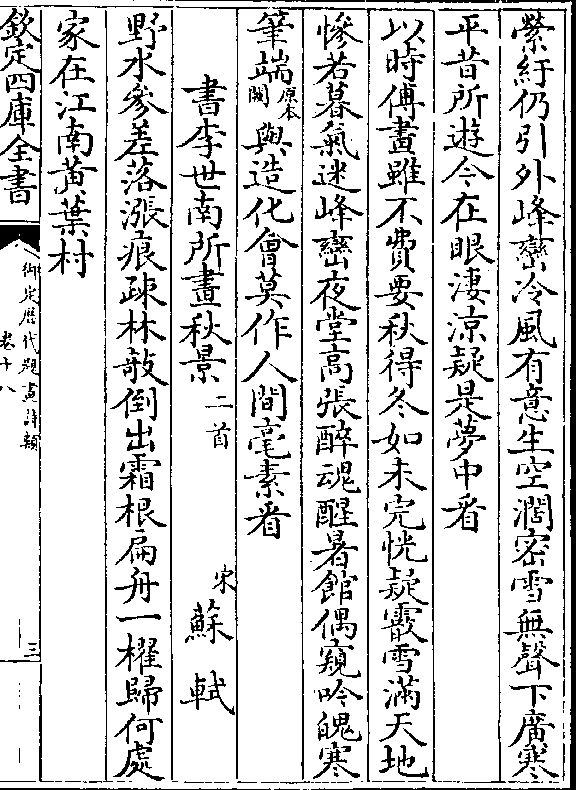 縈紆仍引外峰巒冷風有意生空濶密雪無聲下廣寒
平昔所遊今在眼淒凉疑是夢中看
以時傅畫雖不費要秋得冬如未完恍疑霰雪滿天地
慘若暮氣迷峰巒夜堂高張醉魂醒暑館偶窺吟魄寒
筆端原本闕與造化會莫作人間毫素看
書李世南所畫秋景二首 宋 蘇軾
野水參差落漲痕疎林敧倒出霜根扁舟一櫂歸何處
家在江南黃葉村
欽定四庫全書
御定歷代題畫詩類
卷十八
三